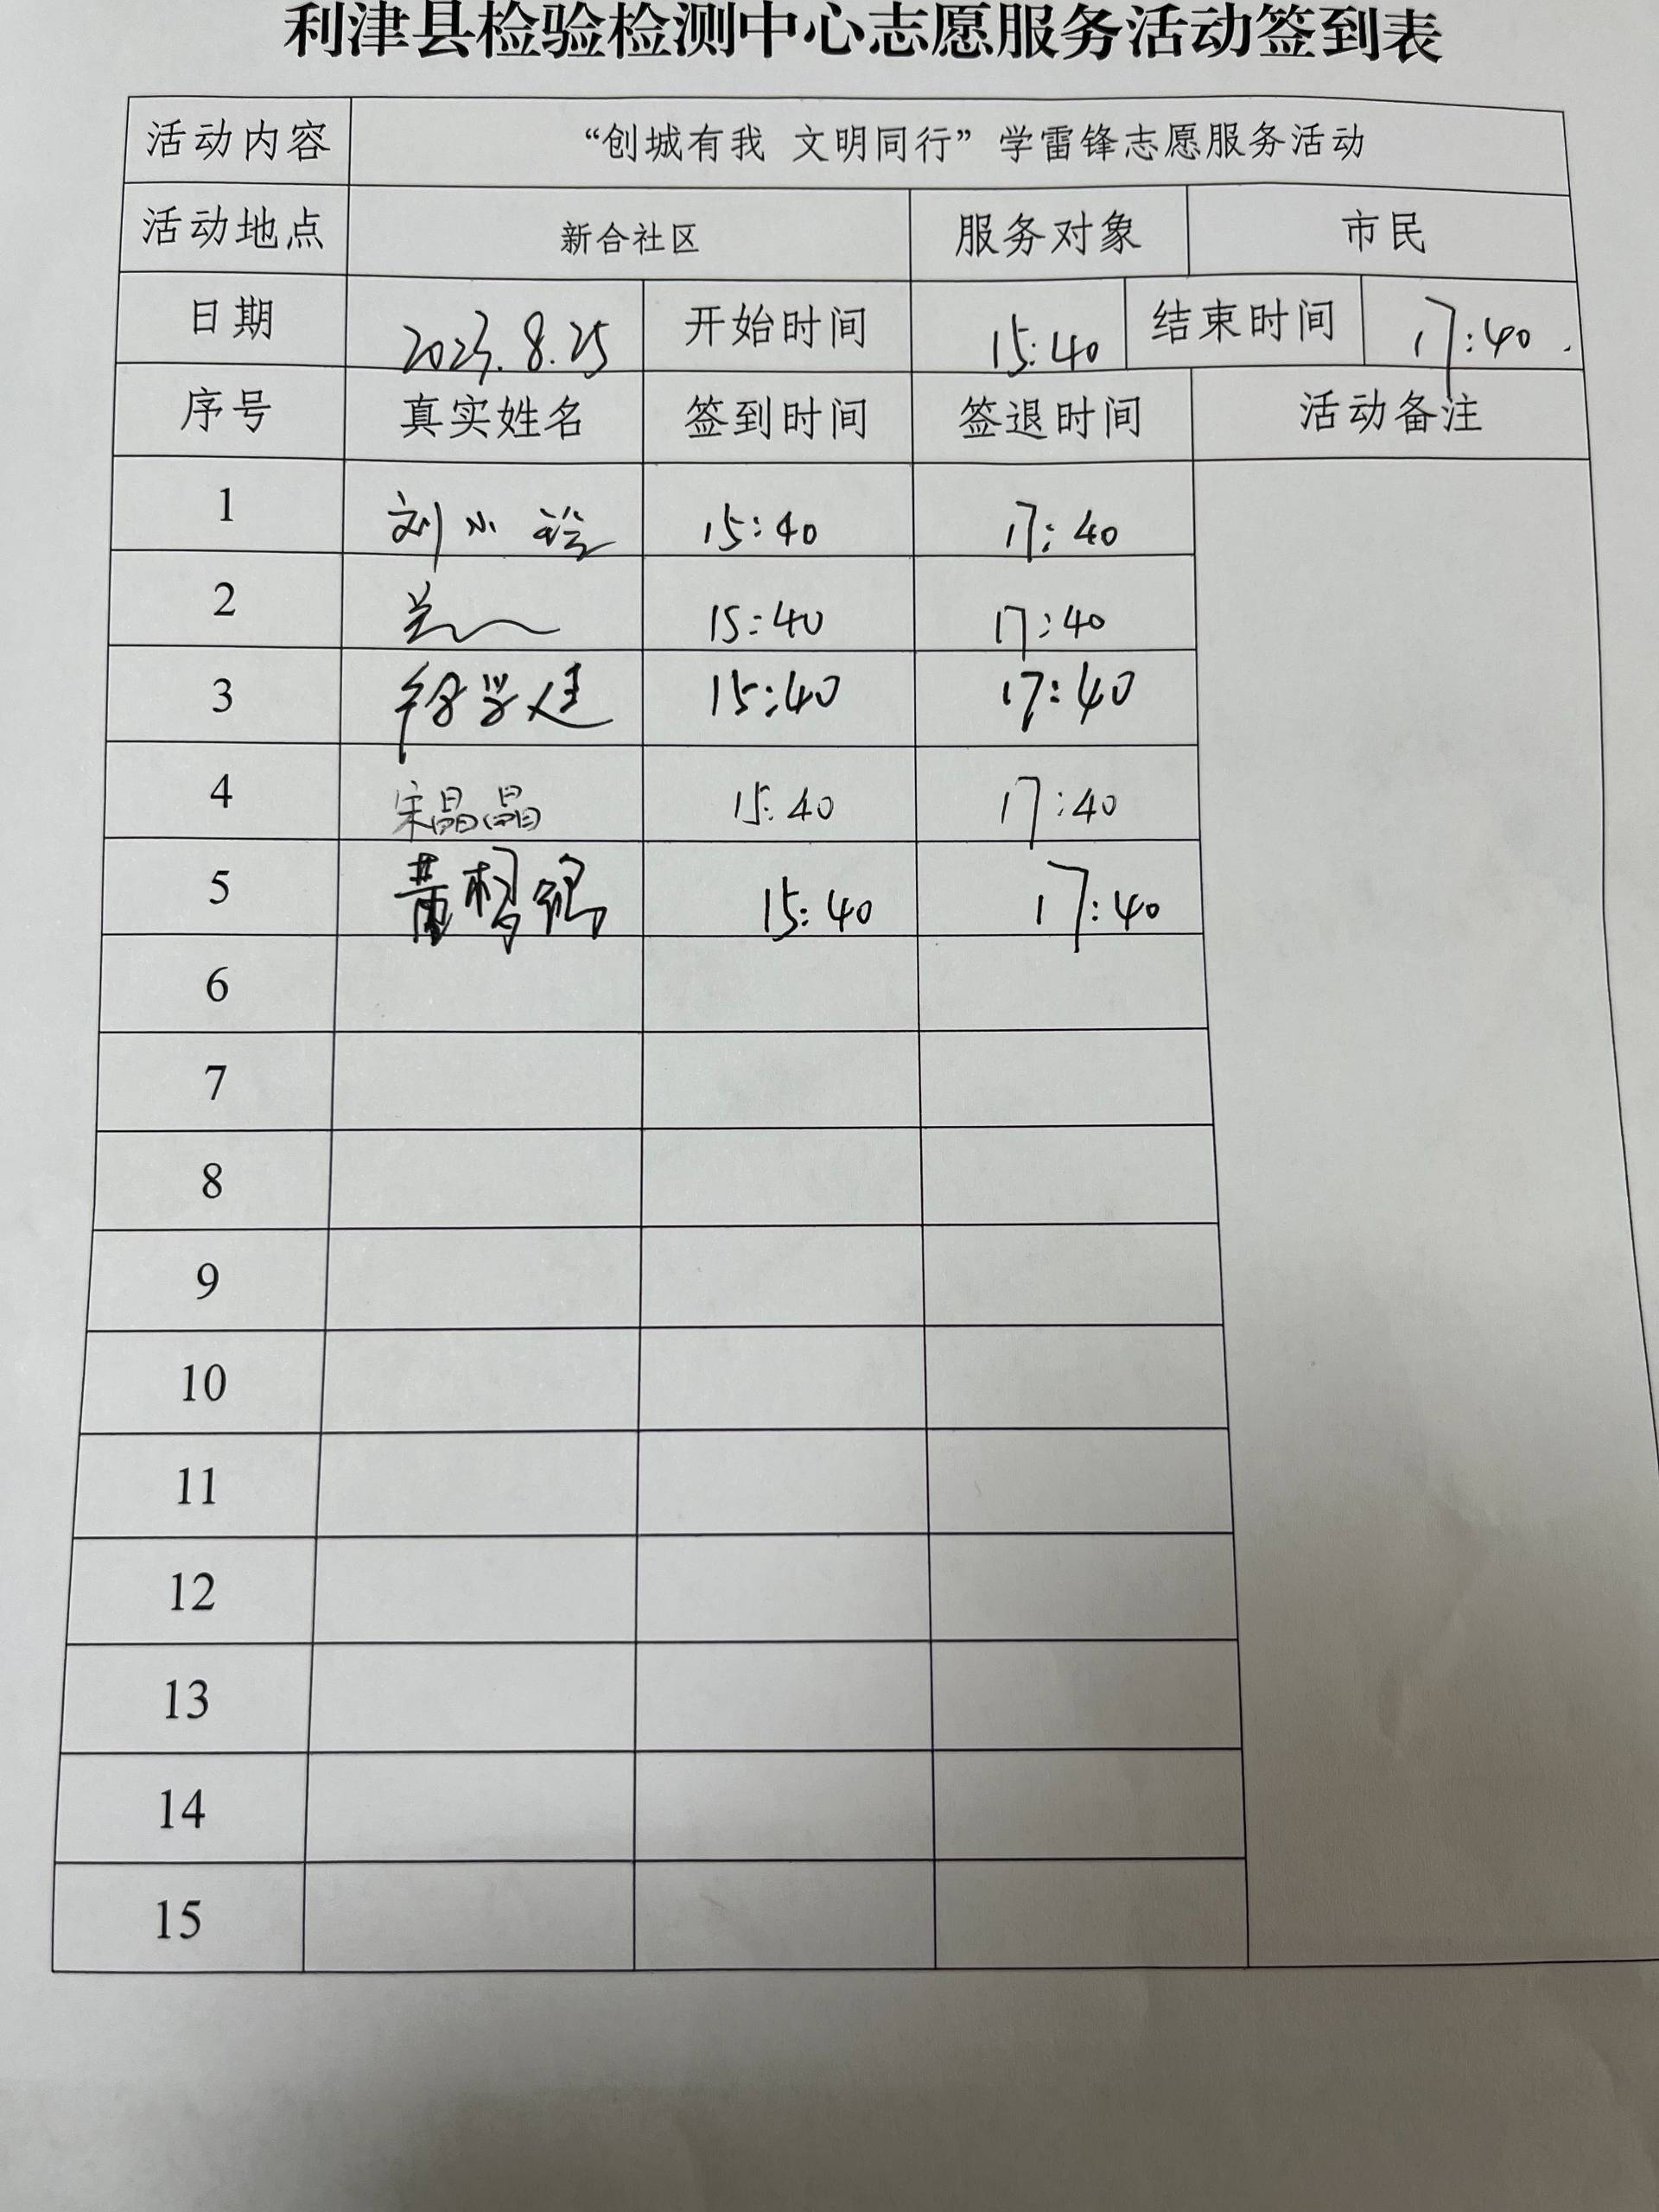 利津县检验检测中心志愿服务活动签到表
活动内容 “创城有我 文明同行”学雷锋志愿服务活动
活动地点 新合社区 服务对象 市民
日期 2023.8.25 开始时间 15:40 结束时间 17:40
序号 真实姓名 签到时间 签退时间 活动备注
1 刘小 15:40 17:40
2 15:40 17:40
3 15:40 17:40
4 宋晶晶 15:40 17:40
5 黄 15:40 17:40
6
7
8
9
10
11
12
13
14
15